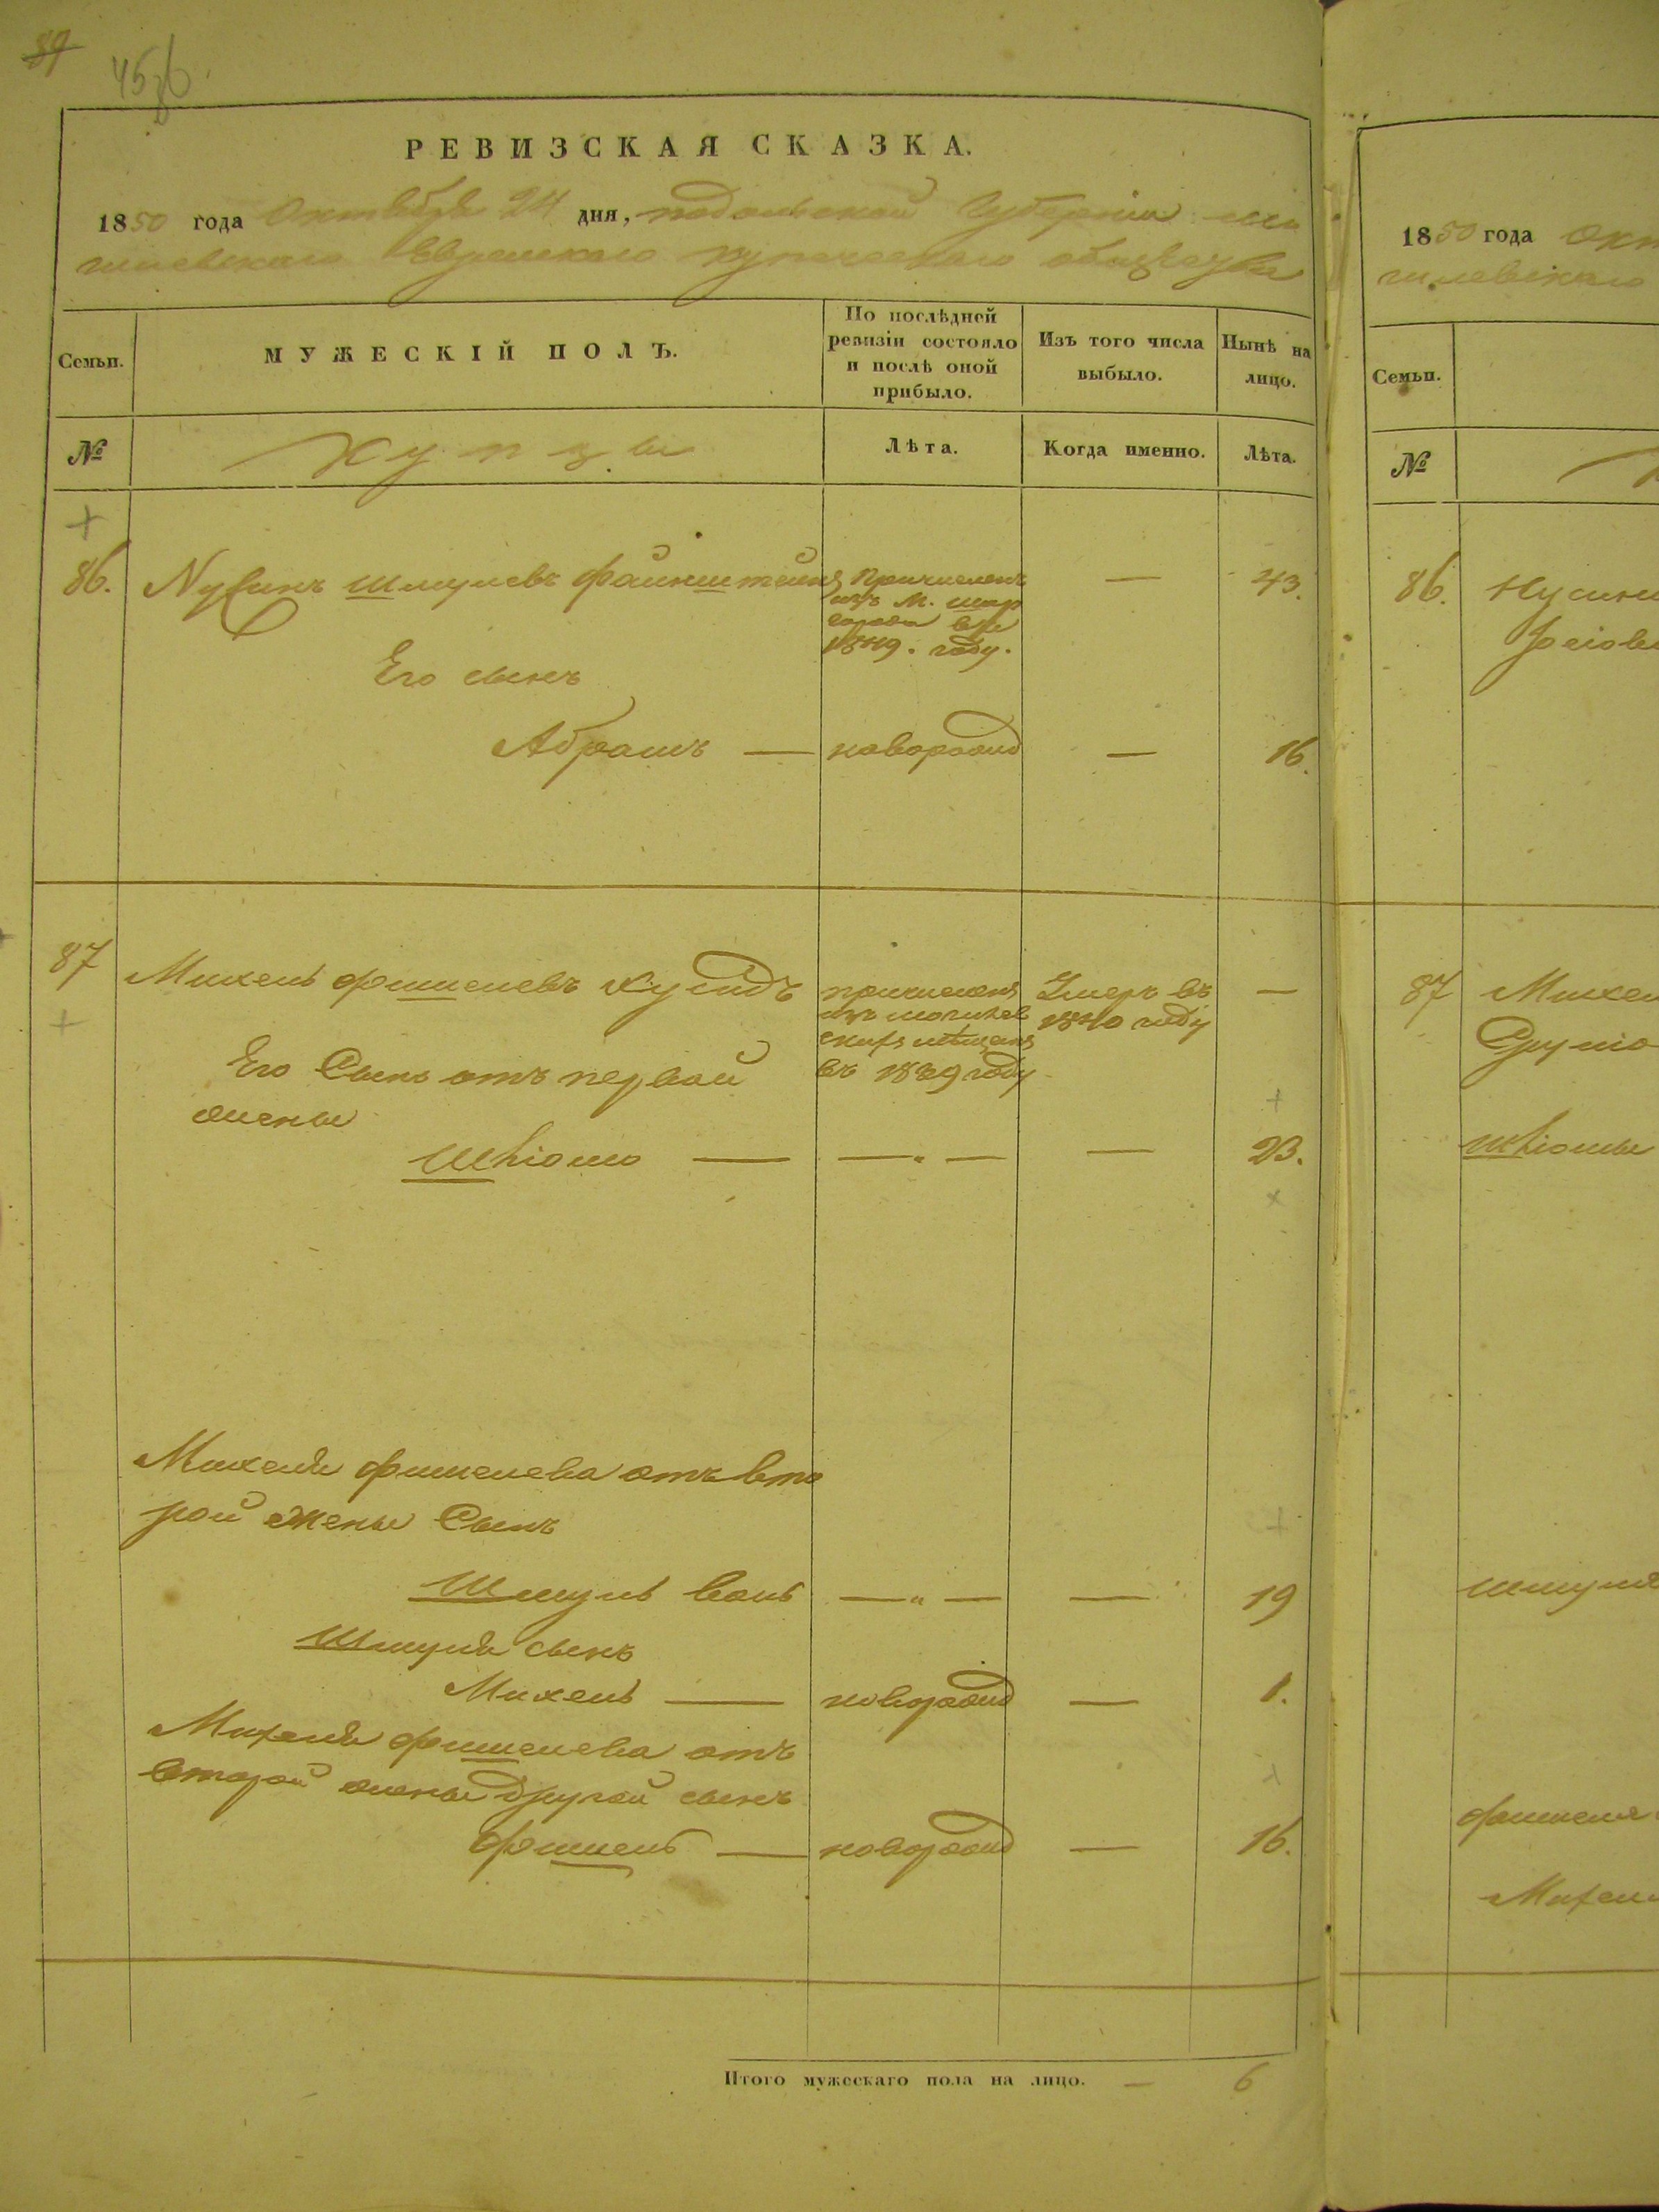 89
45об.
РЕВИЗСКАЯ СКАЗКА.
1850 года Октября 24 дня, подольской Губерніи мо
гилевскаго Еврейскаго купеческаго общества
Семьи.
МУЖЕСКІЙ ПОЛЪ.
По послѣдней ревизіи состояло и послѣ оной прибыло.
Изъ того числа выбыло.
Нынѣ на лицо.
№
Купцы
Лѣта.
Когда именно.
Лѣта.
86. Шмулевъ Файнштейнъ — 43.
Причисленъ
изъ М. Шар
города въ
1849. году.
Его сынъ
Абрамъ — новорожд — 16.
87 Михель Фишелевъ —
причисленъ
изъ могилев
скихъ мѣщанъ
въ 1839 году
Умеръ въ
1840 году
Его Сынъ отъ первой
жены
Шліомо — — „ — — 23.
Михеля Фишелева отъ вто
рой жены Сынъ
Шмуль Воль — „ — — 19
Шмуля сынъ
Михель — новорожд — 1.
Михеля Фишелева отъ
второй жены другой сынъ
Фишель — новорожд — 16.
Итого мужескаго пола на лицо. — 6
1850 года Окт
гилевскаго
Семьи.
№
86.
87 Михел
Шліомы
Шмуля
Фишеля
Михел